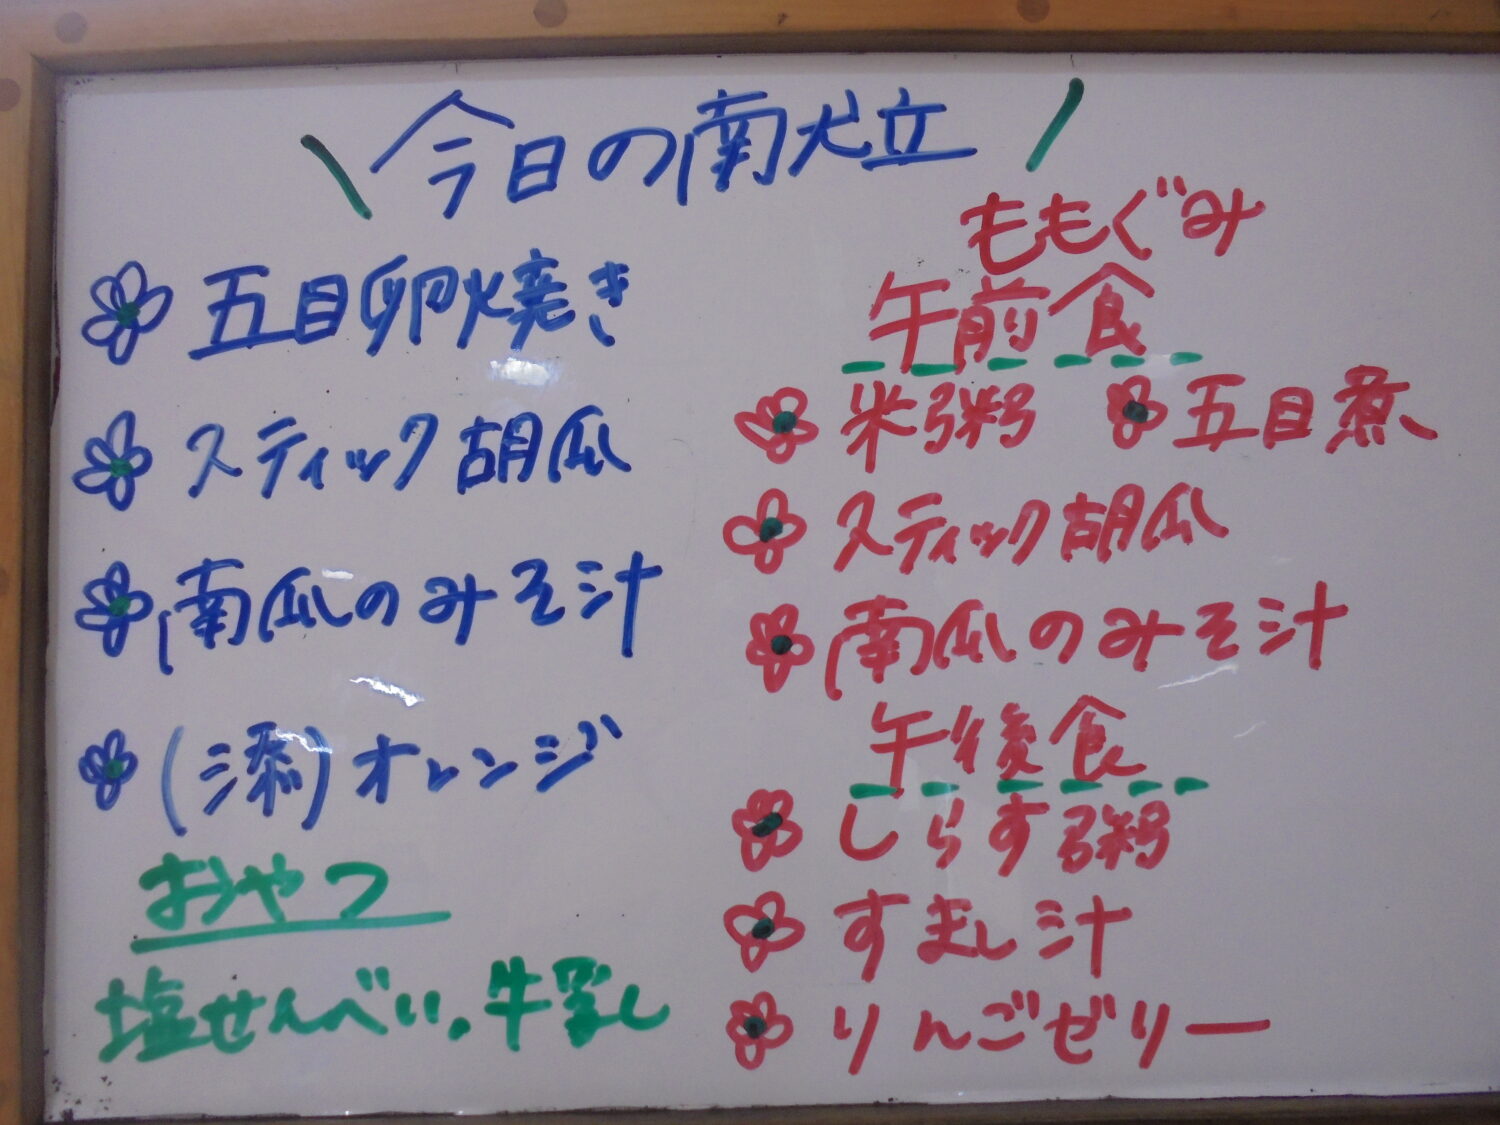 今日の献立
五目卵焼き
スティック胡瓜
南瓜のみそ汁
(添)オレンジ
おやつ
塩せんべい、牛乳
ももぐみ
午前食
米粥 五目煮
スティック胡瓜
南瓜のみそ汁
午後食
しらす粥
すまし汁
りんごゼリー